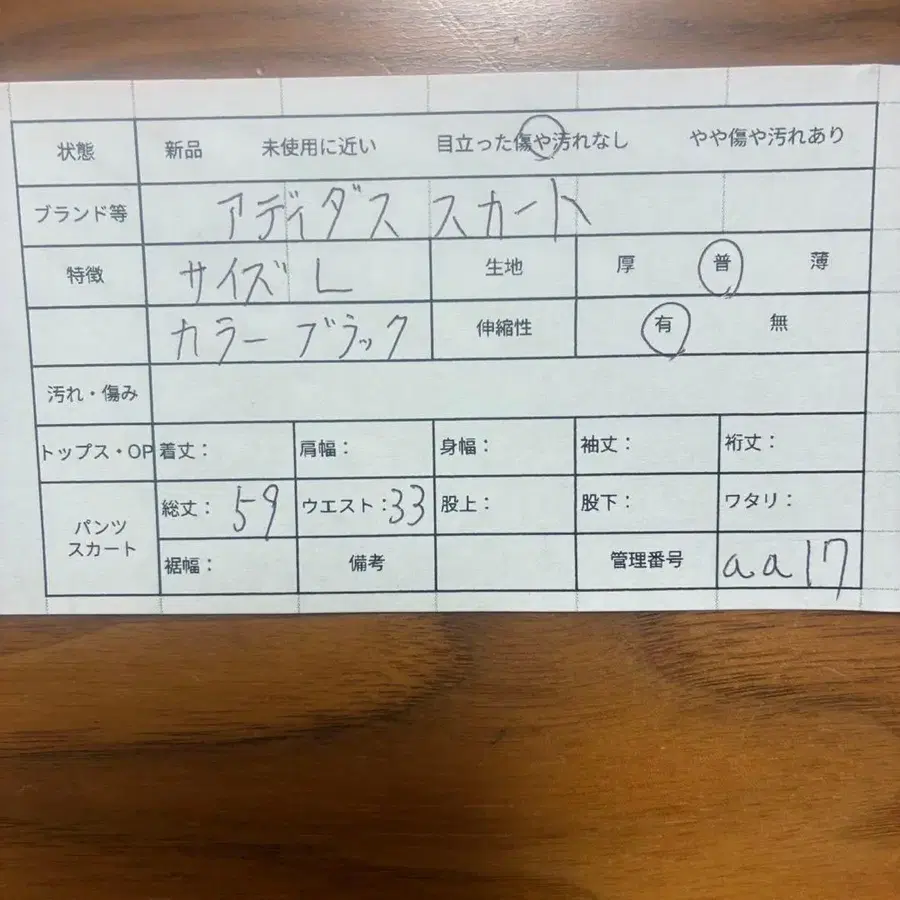 状態 新品 未使用に近い 目立った傷や汚れなし やや傷や汚れあり
ブランド等 アディダス スカート
特徴 サイズ L 生地 厚 普 薄
カラー ブラック 伸縮性 有 無
汚れ・傷み
トップス・OP 着丈: 肩幅: 身幅: 袖丈: 裄丈:
パンツ スカート 総丈: 59 ウエスト: 33 股上: 股下: ワタリ:
裾幅: 備考 管理番号 aa17